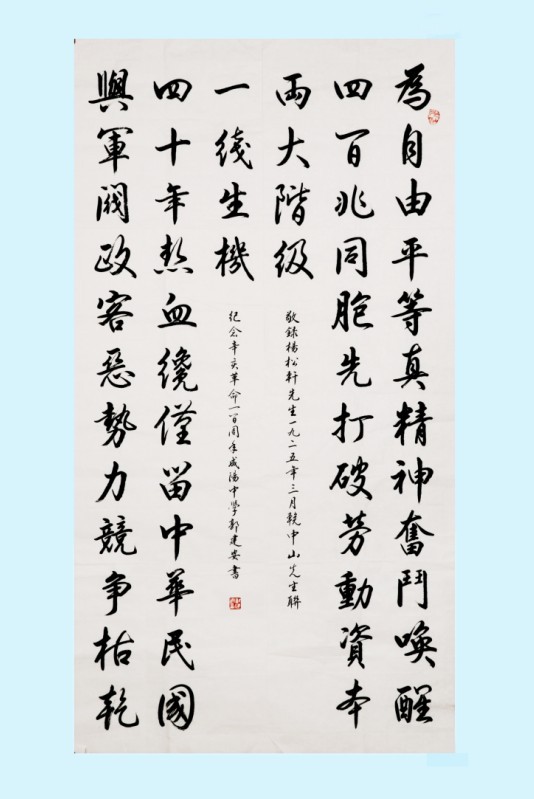 為自由平等真精神奮鬥喚醒
四百兆同胞先打破勞動資本
兩大階級
與軍閥政客惡勢力競爭枯乾
四十年熱血纔僅留中華民國
一綫生機
敬録楊松軒先生一九二五年三月輓中山先生聯
紀念辛亥革命一百周年咸陽中學建安書